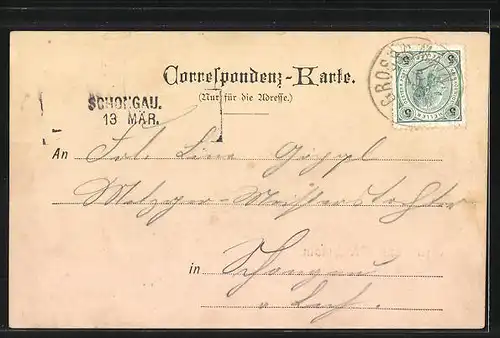 Correspondenz-Karte.
(Nur für die Adresse.)
SCHONGAU.
13 MÄR.
An Frl. Lina
Metzger-Meisters tochter
in Schongau
a Lech.